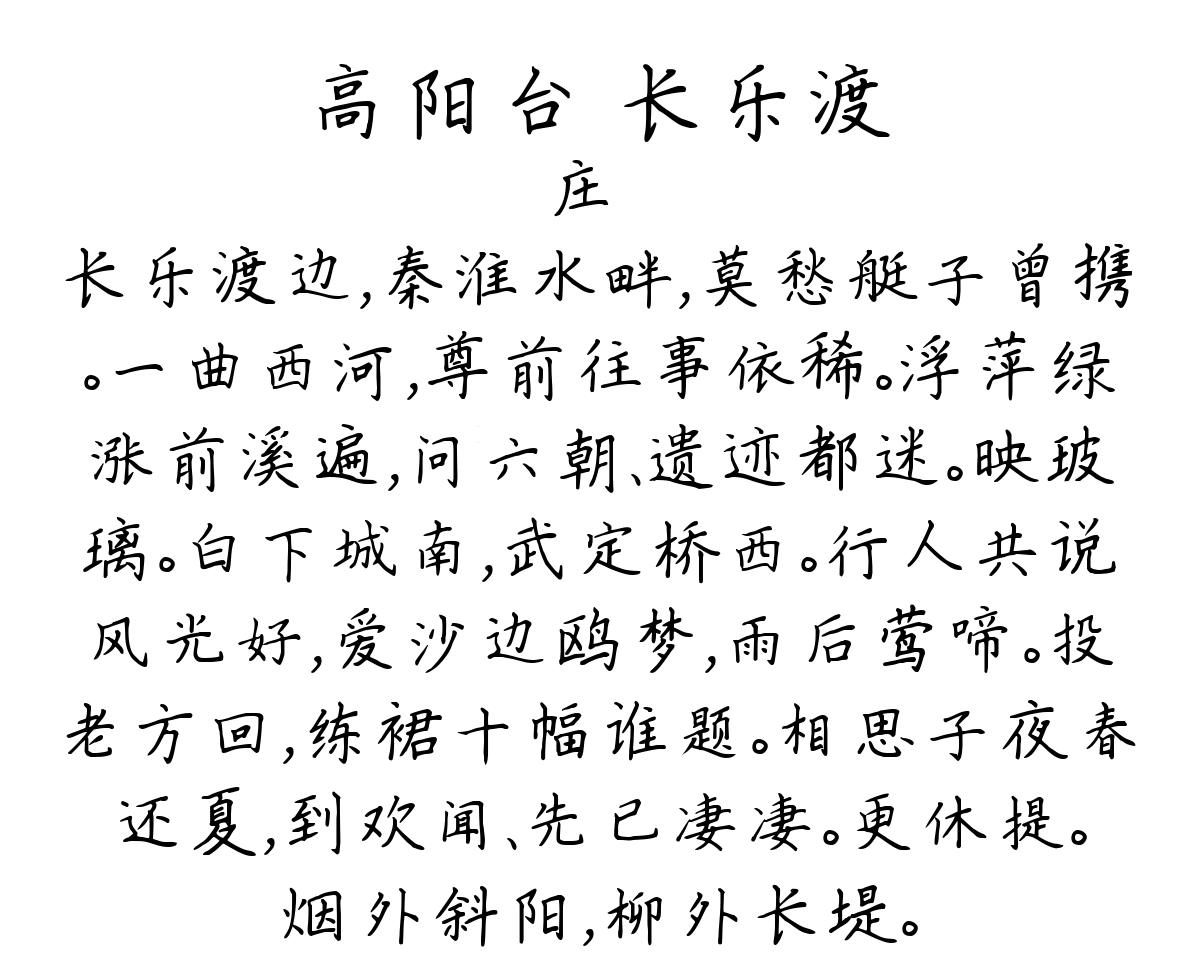 高阳台 长乐渡
庄
长乐渡边,秦淮水畔,莫愁艇子曾携
。一曲西河,尊前往事依稀。浮萍绿
涨前溪遍,问六朝、遗迹都迷。映玻
璃。白下城南,武定桥西。行人共说
风光好,爱沙边鸥梦,雨后莺啼。投
老方回,练裙十幅谁题。相思子夜春
还夏,到欢闻、先已凄凄。更休提。
烟外斜阳,柳外长堤。